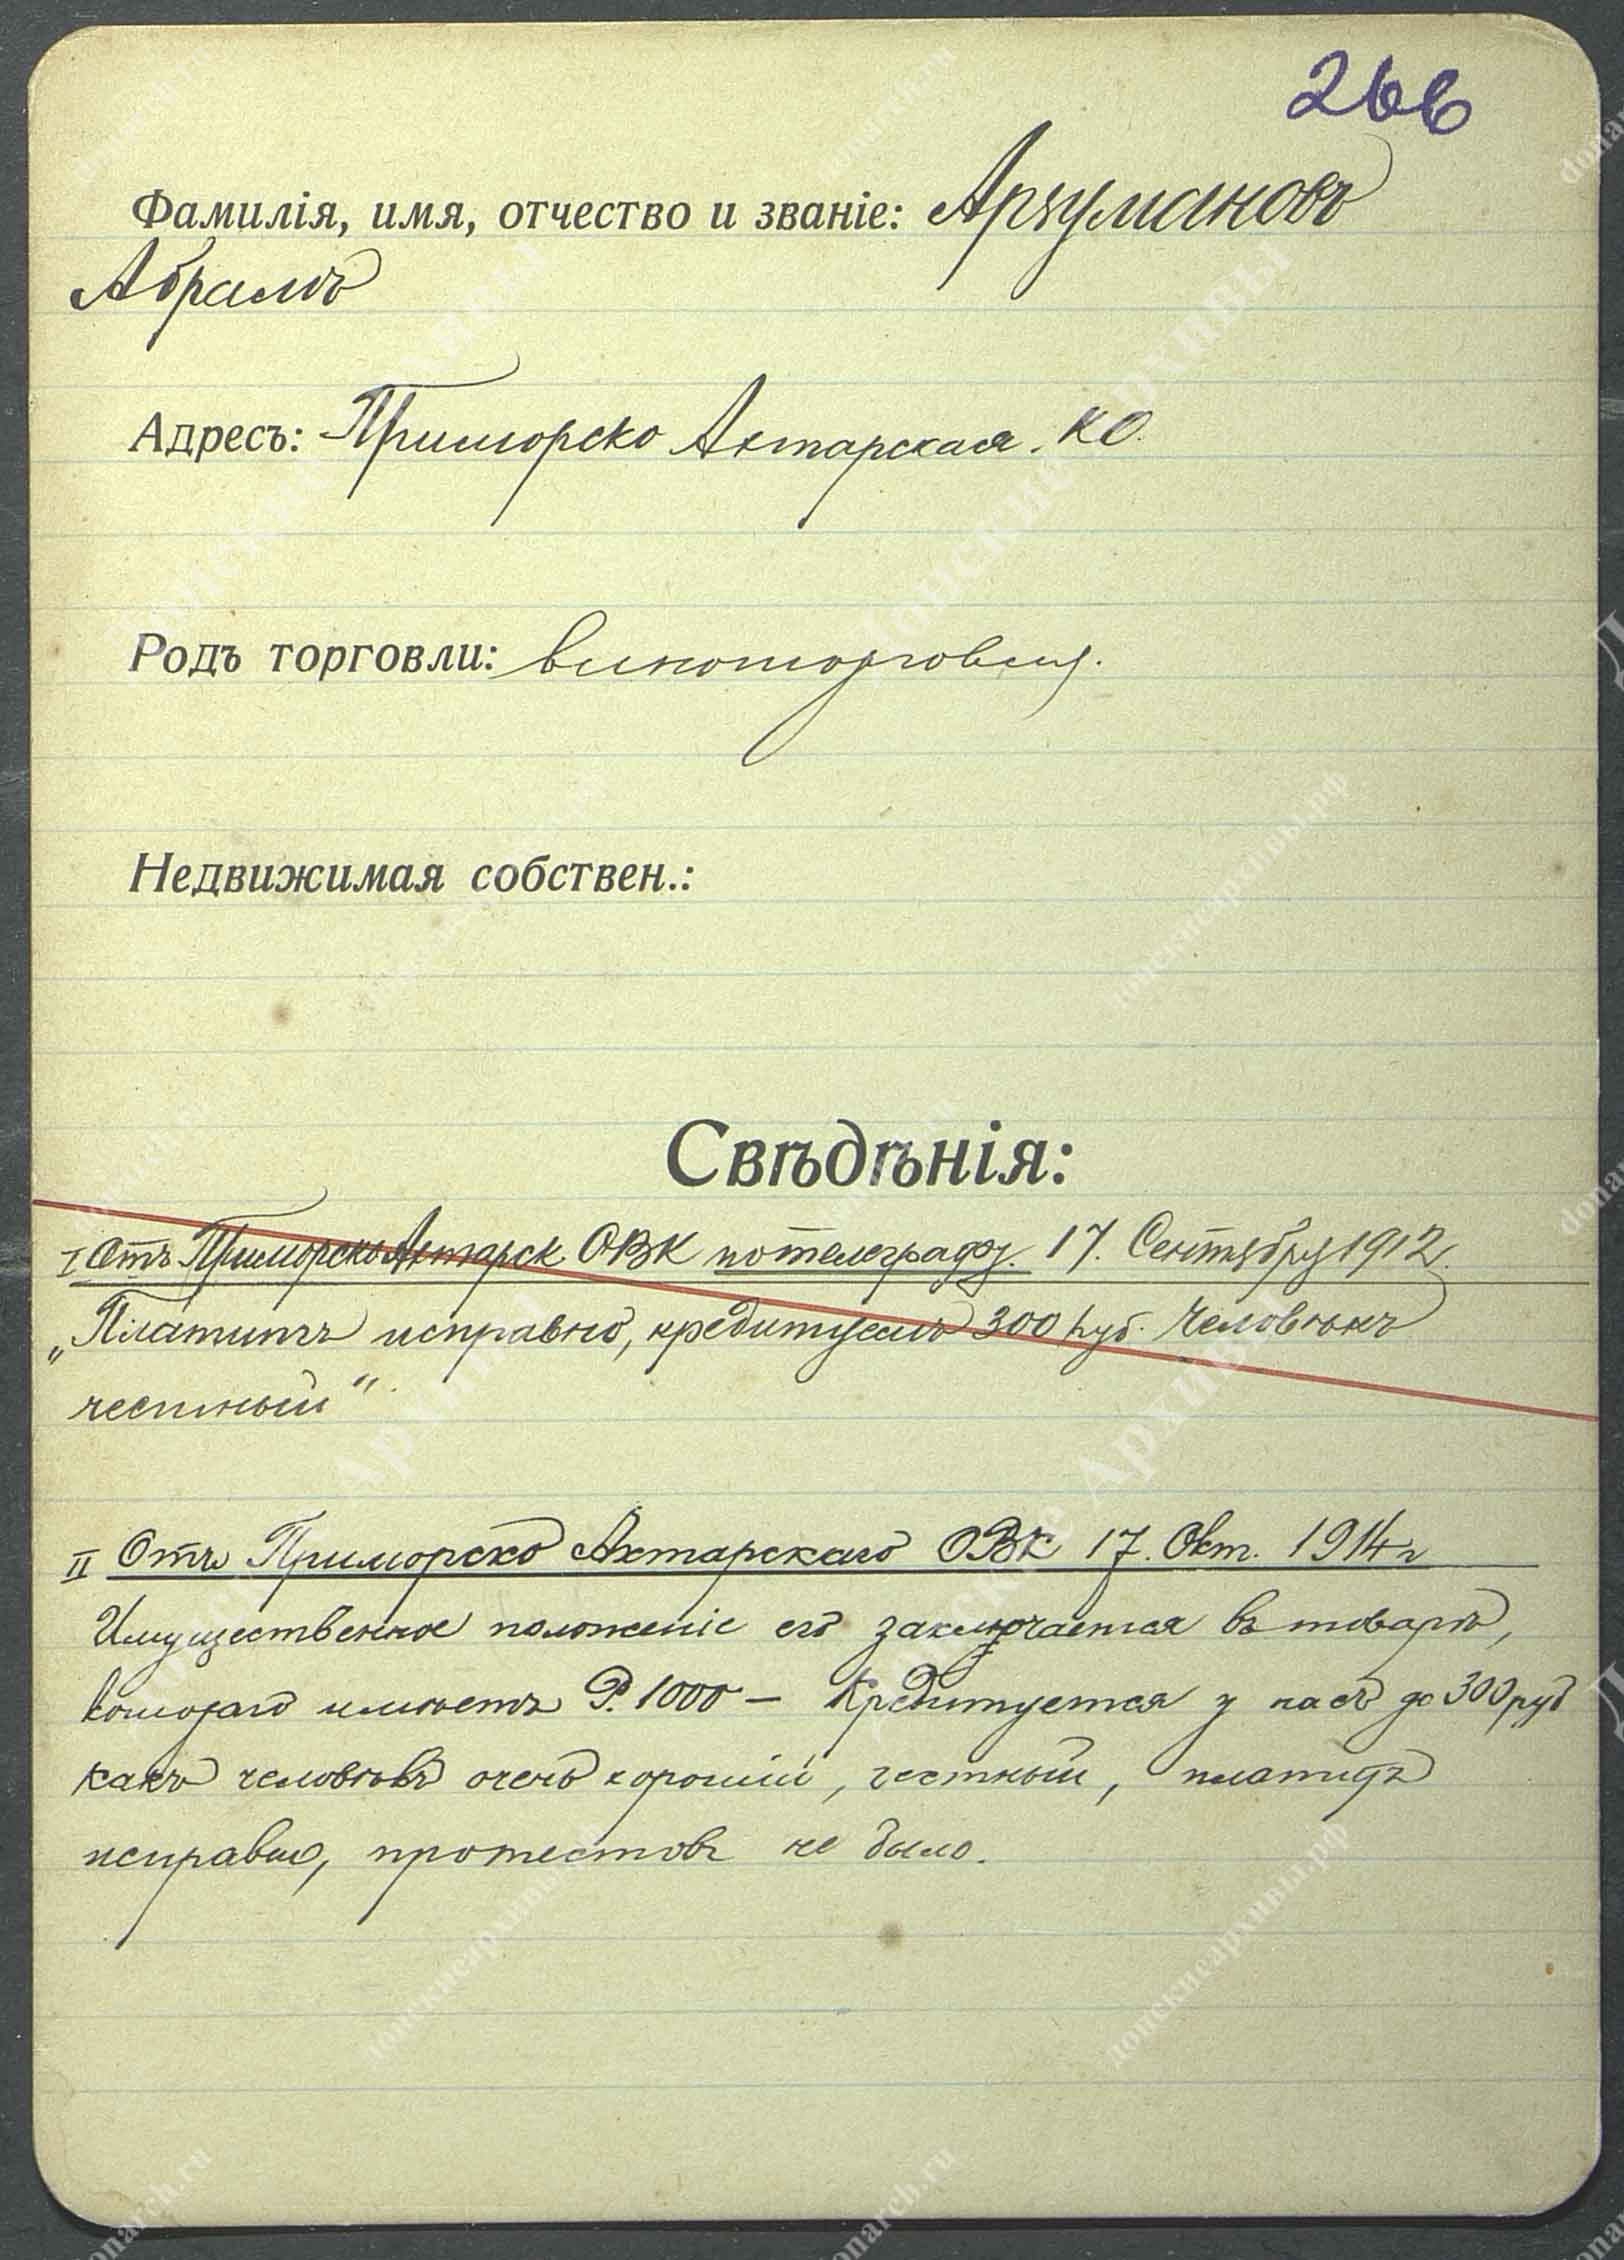 266
Фамилія, имя, отчество и званіе: Арзумановъ
Абрамъ
Адресъ: Приморско Ахтарская. КО.
Родъ торговли: виноторговля.
Недвижимая собствен.:
Свѣдѣнія:
I Отъ Приморско Ахтарск. ОВК по телеграфу. 17. Сентября 1912.
„Платитъ исправно, кредитуемъ 300 руб. Человѣкъ
честный“.
II Отъ Приморско Ахтарскаго ОВК 17. Окт. 1914 г
Имущественное положеніе его заключается въ товарѣ,
котораго имѣетъ Р. 1000 – Кредитуется у насъ до 300 руб
какъ человѣкъ очень хорошій, честный, платитъ
исправно, протестовъ не было.